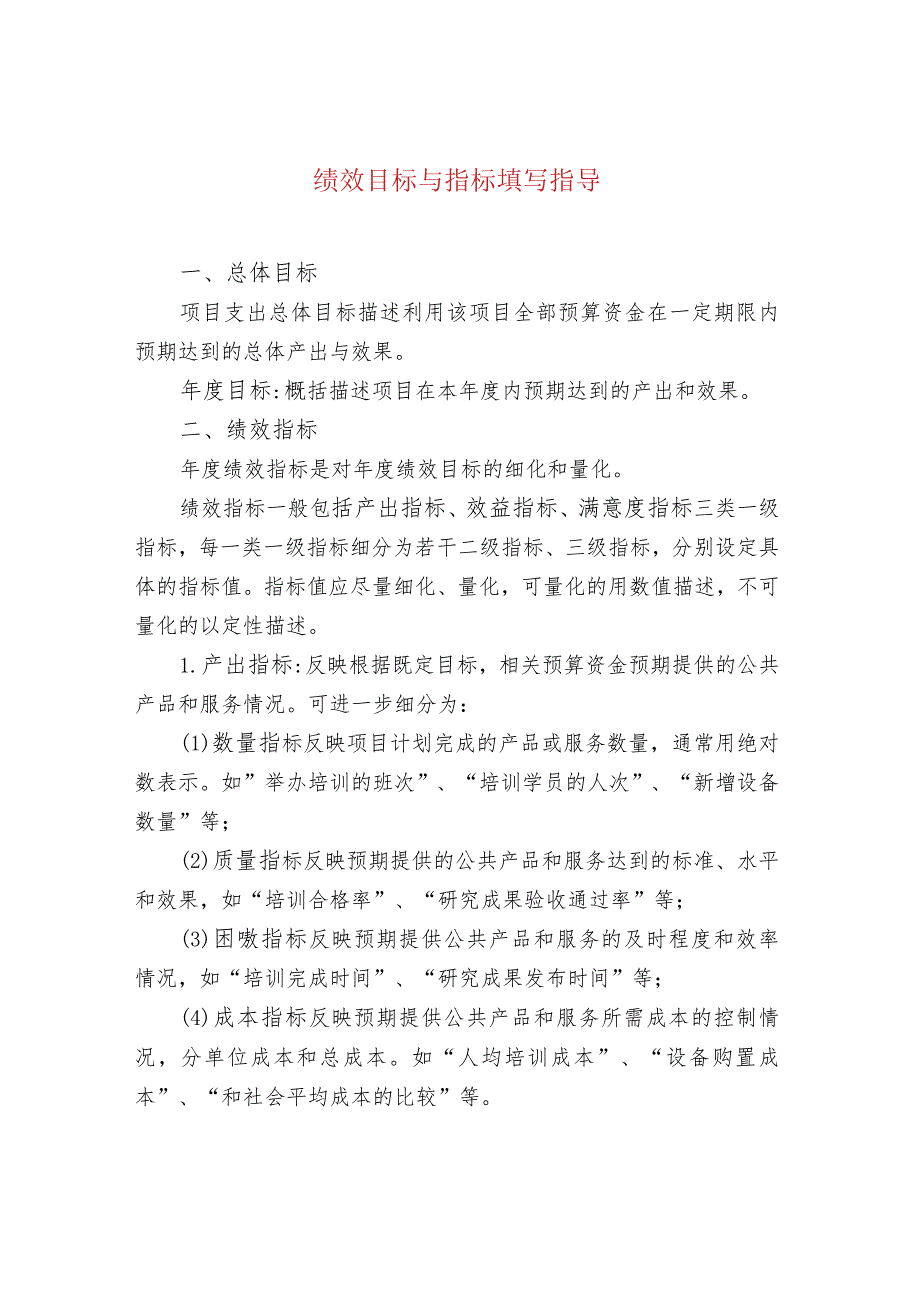 绩效目标与指标填写指导
一、总体目标
项目支出总体目标描述利用该项目全部预算资金在一定期限内
预期达到的总体产出与效果。
年度目标:概括描述项目在本年度内预期达到的产出和效果。
二、绩效指标
年度绩效指标是对年度绩效目标的细化和量化。
绩效指标一般包括产出指标、效益指标、满意度指标三类一级
指标，每一类一级指标细分为若干二级指标、三级指标，分别设定具
体的指标值。指标值应尽量细化、量化，可量化的用数值描述，不可
量化的以定性描述。
1.产出指标:反映根据既定目标，相关预算资金预期提供的公共
产品和服务情况。可进一步细分为：
(1)数量指标反映项目计划完成的产品或服务数量，通常用绝对
数表示。如”举办培训的班次”、“培训学员的人次”、“新增设备
数量”等；
(2)质量指标反映预期提供的公共产品和服务达到的标准、水平
和效果，如“培训合格率”、“研究成果验收通过率”等；
(3)困嗷指标反映预期提供公共产品和服务的及时程度和效率
情况，如“培训完成时间”、“研究成果发布时间”等；
(4)成本指标反映预期提供公共产品和服务所需成本的控制情
况，分单位成本和总成本。如“人均培训成本”、“设备购置成
本”、“和社会平均成本的比较”等。